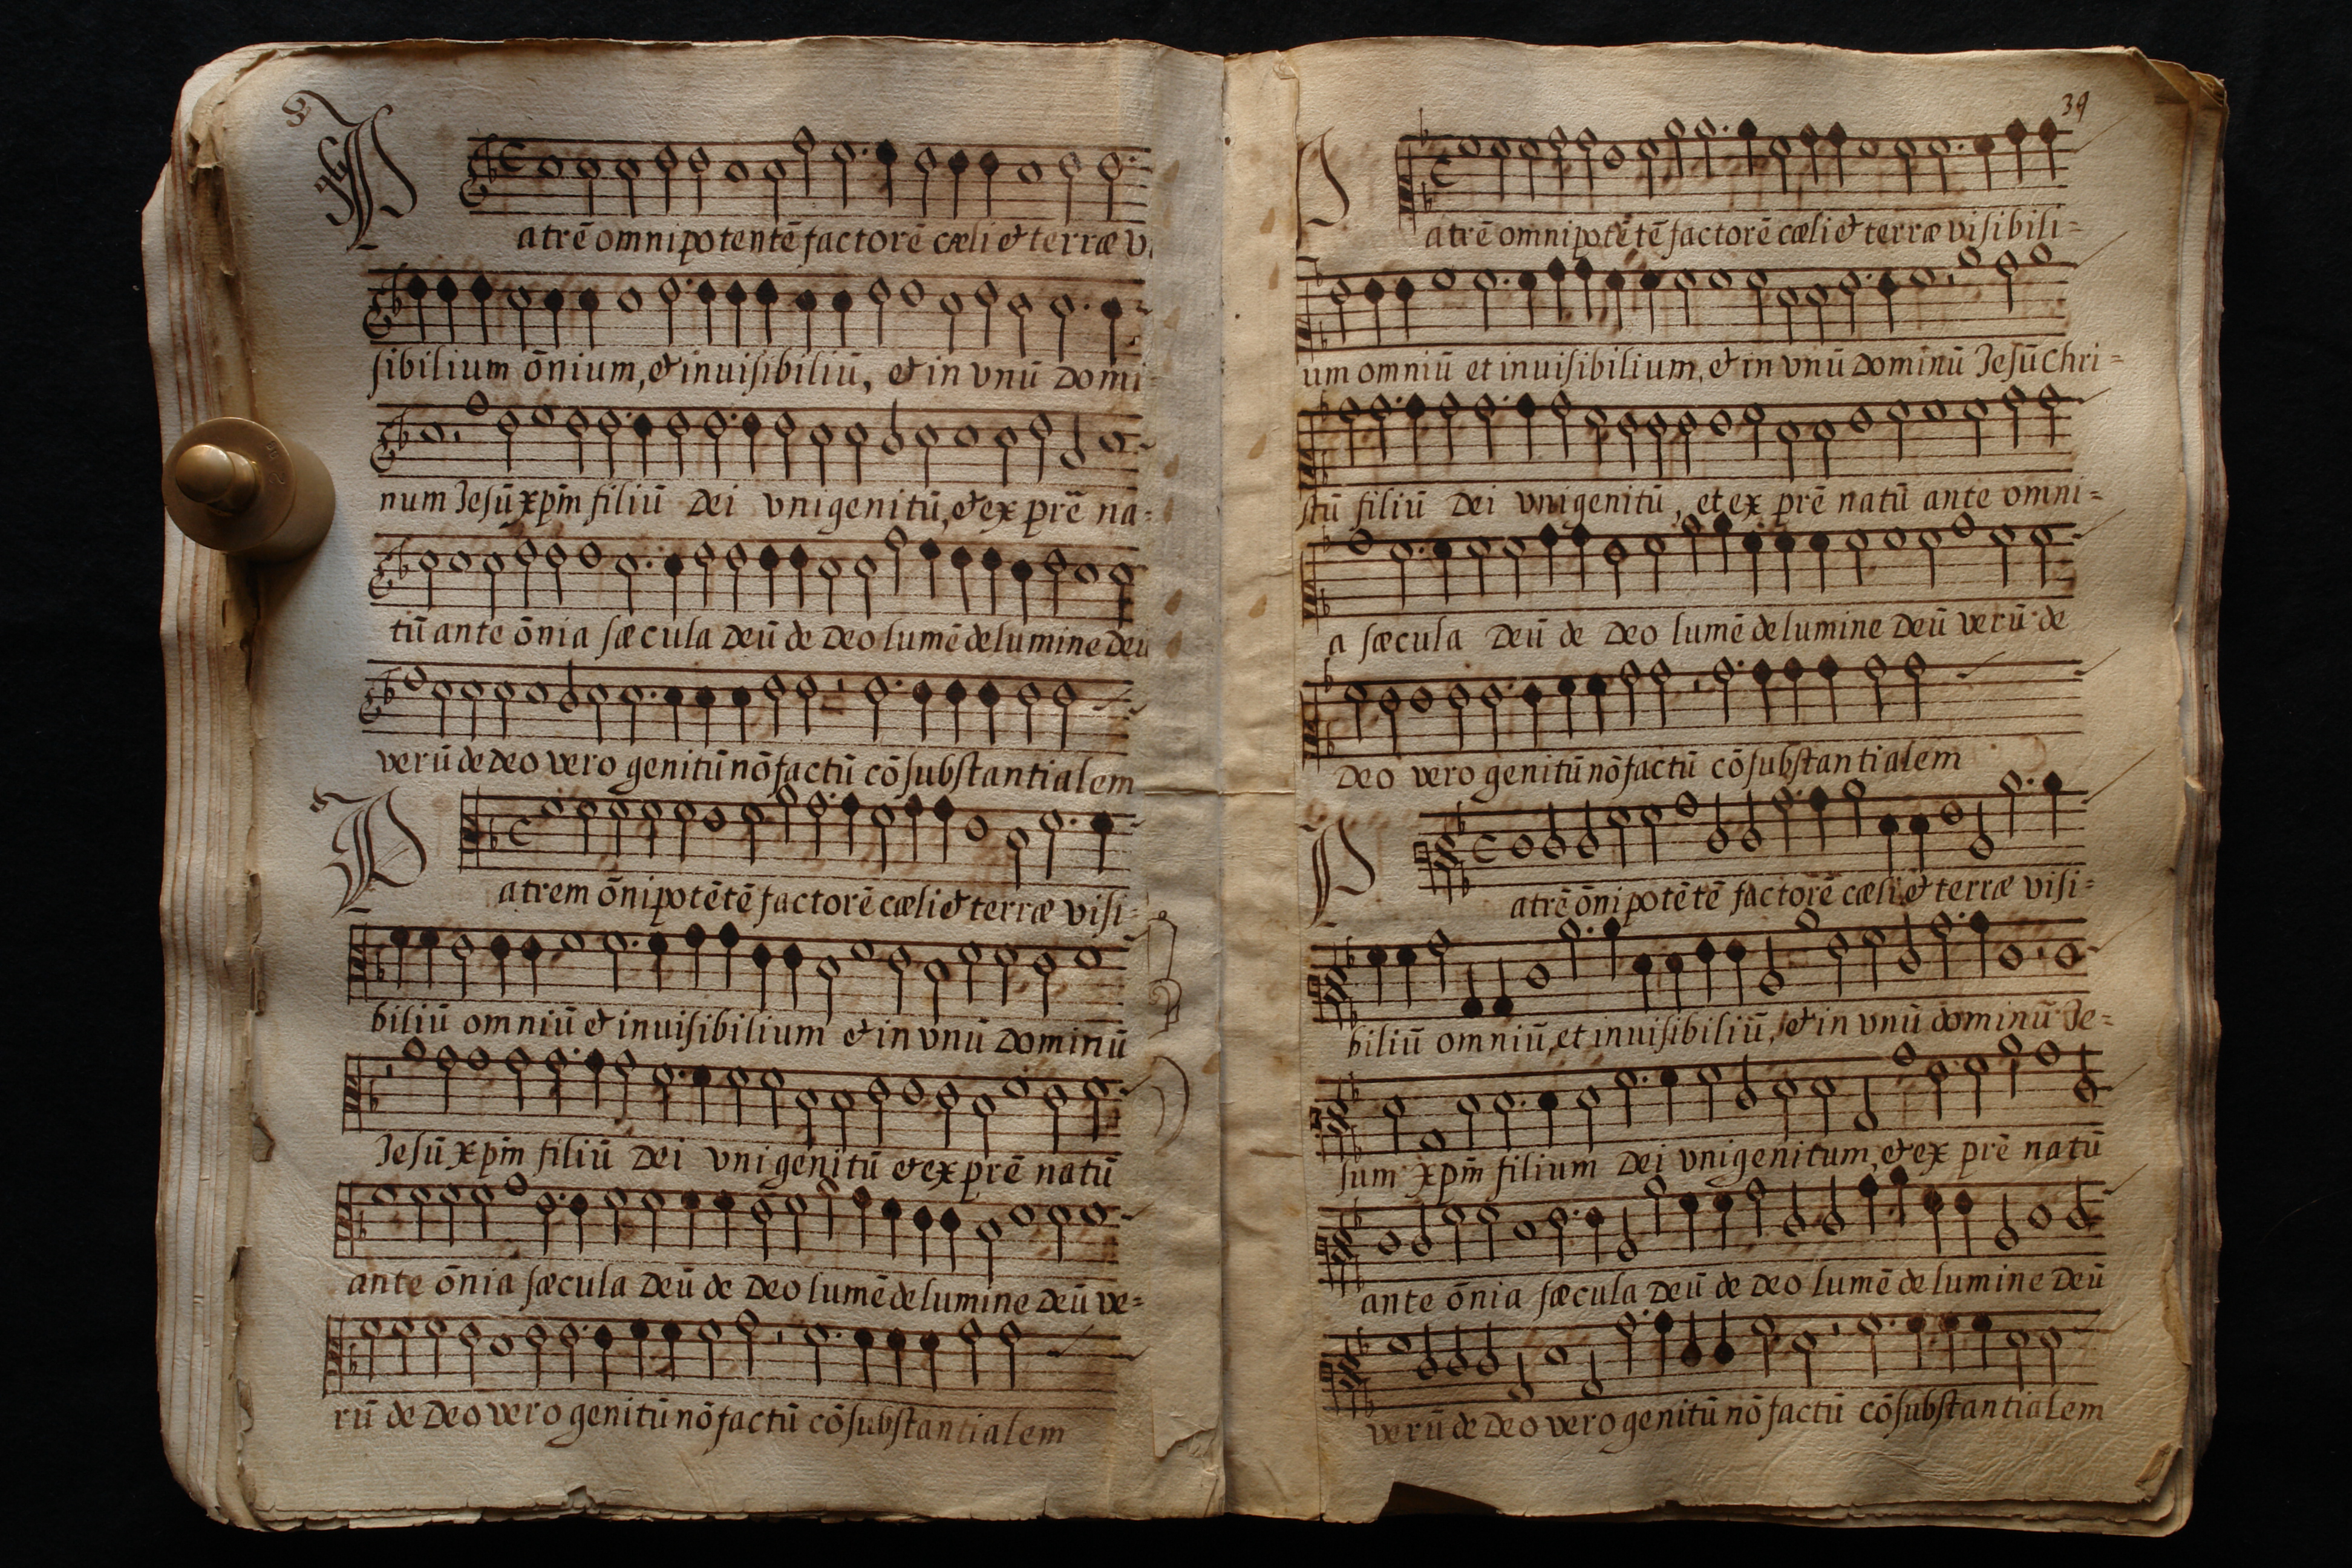 atrē omnipotentē factorē cæli & terræ v
sibilium ōnium, & inuisibiliū, & in vnū Domi-
num Jesū xp̄m filiū Dei vnigenitū, & ex prē na-
tū ante ōnia sæcula Deū de Deo lumē de lumine Deū
verū de Deo vero genitū nō factū cōsubstantialem
P
atrem ōnipotētē factorē cæli & terræ visi-
biliū omniū & inuisibilium & in vnū Dominū
Jesū xp̄m filiū Dei vnigenitū & ex prē natū
ante ōnia sæcula Deū de Deo lumē de lumine Deū ve-
rū de Deo vero genitū nō factū cōsubstantialem
39
atrē omnipotētē factorē cæli & terræ visibili-
um omniū et inuisibilium, & in vnū Dominū Jesū Chri-
stū filiū Dei vnigenitū, et ex prē natū ante omni-
a sæcula Deū de Deo lumē de lumine Deū verū de
Deo vero genitū nō factū cōsubstantialem
P
atrē ōnipotētē factorē cæli & terræ visi-
biliū omniū, et inuisibiliū, & in vnū dominū Je-
sum xp̄m filium Dei vnigenitum, & ex prē natū
ante ōnia sæcula Deū de Deo lumē de lumine Deū
verū de Deo vero genitū nō factū cōsubstantialem